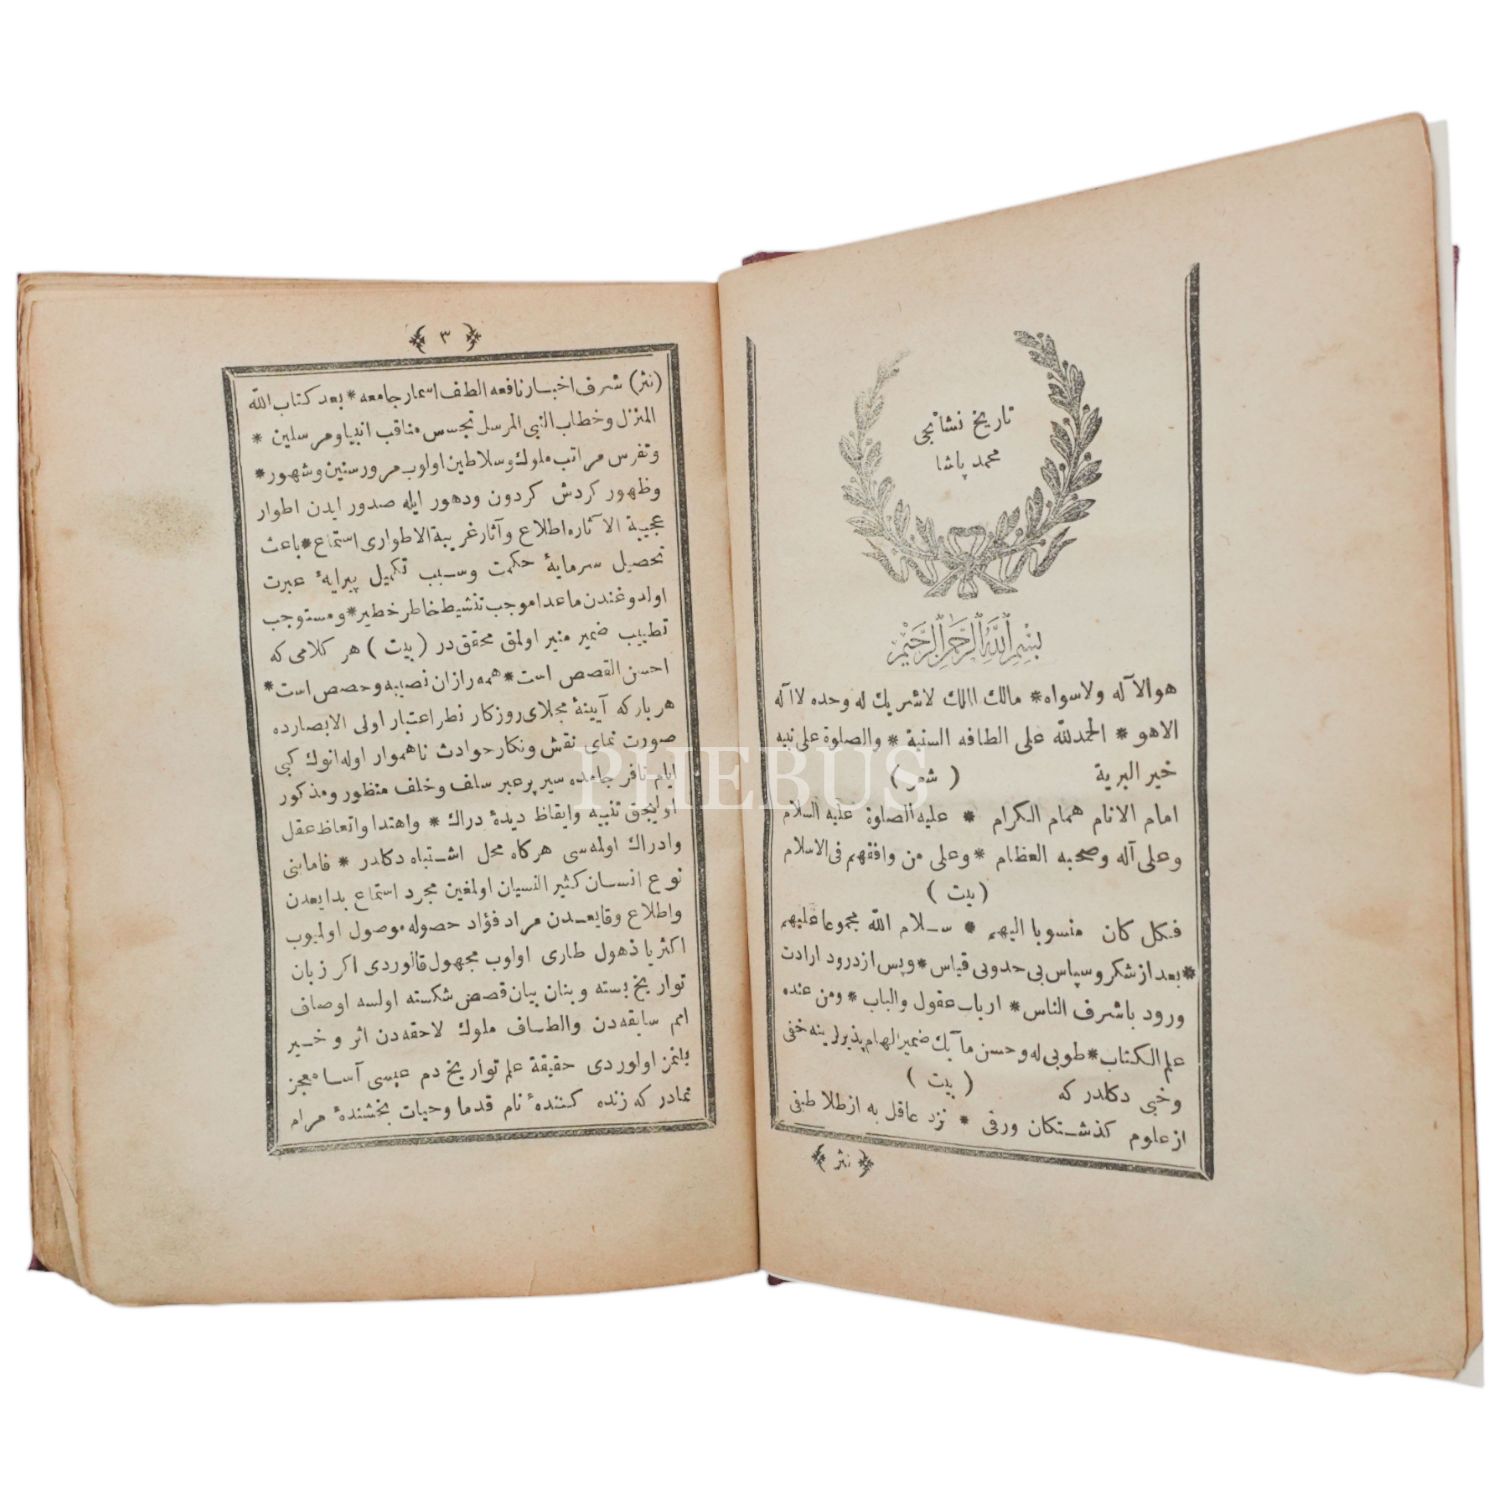 تاريخ نشانجى
محمد پاشا
بسم الله الرحمن الرحيم
هوالآله ولاسواه * مالك الملك لاشريك له وحده لاآله
الاهو * الحمدلله على الطافه السنية * والصلوة على نبيه
خير البرية ( شعر )
امام الانام همام الكرام * عليه الصلوة عليه السلام
وعلى آله وصحبه العظام * وعلى من وافقهم فى الاسلام
( بيت )
فكل كان منسوبا اليهم * سلام الله مجموعا عليهم
* بعد از شكر وسپاس بى حدوبى قياس * وپس ازدرود ارادت
ورود باشرف الناس * ارباب عقول والباب * ومن عنده
علم الكتاب * طوبى له وحسن مآبك ضمير الهام پذيرلرينه خفى
وخبى دكلدر كه ( بيت )
ازعلوم كذشتكان ورقى * نزد عاقل به ازطلا طبقى
نثر
٣
(نثر) شرف اخبار نافعه الطف اسمار جامعه * بعد كتاب الله
المنزل وخطاب النبى المرسل تجسس مناقب انبيا ومرسلين *
وتفرس مراتب ملوك وسلاطين اولوب مرور سنين وشهور *
وظهور كردش كردون ودهور ايله صدور ايدن اطوار
عجيبة الآثاره اطلاع وآثار غريبة الاطوارى استماع * باعث
تحصيل سرمايهٔ حكمت وسبب تكميل پيرايهٔ عبرت
اولدوغندن ماعدا موجب تنشيط خاطر خطير * ومستوجب
تطييب ضمير منير اولمق محققدر ( بيت ) هر كلامى كه
احسن القصص است * همه رازان نصيبه وحصص است *
هربار كه آيينهٔ مجلاى روزكار نظر اعتبار اولى الابصارده
صورت نماى نقش ونكار حوادث ناهموار اوله انوك كبى
ايام نافر جامده سير پرعبر سلف وخلف منظور ومذكور
اولنجق تنبيه وايقاظ ديدهٔ دراك * واهتدا واتعاظ عقل
وادراك اولمه سى هركاه محل اشتباه دكلدر * فاما بنى
نوع انسان كثير النسيان اولمغين مجرد استماع بدايعدن
واطلاع وقايعدن مراد فؤاد حصوله موصول اولميوب
اكثريا ذهول طارى اولوب مجهول قالوردى اكر زبان
تواريخ بسته وبنان بيان قصص شكسته اولسه اوصاف
امم سابقه دن والطاف ملوك لاحقه دن اثر وخبر
بلنمز اولوردى حقيقة علم تواريخ دم عيسى آسا معجز
نمادر كه زنده كنندهٔ نام قدما وحيات بخشندهٔ مرام